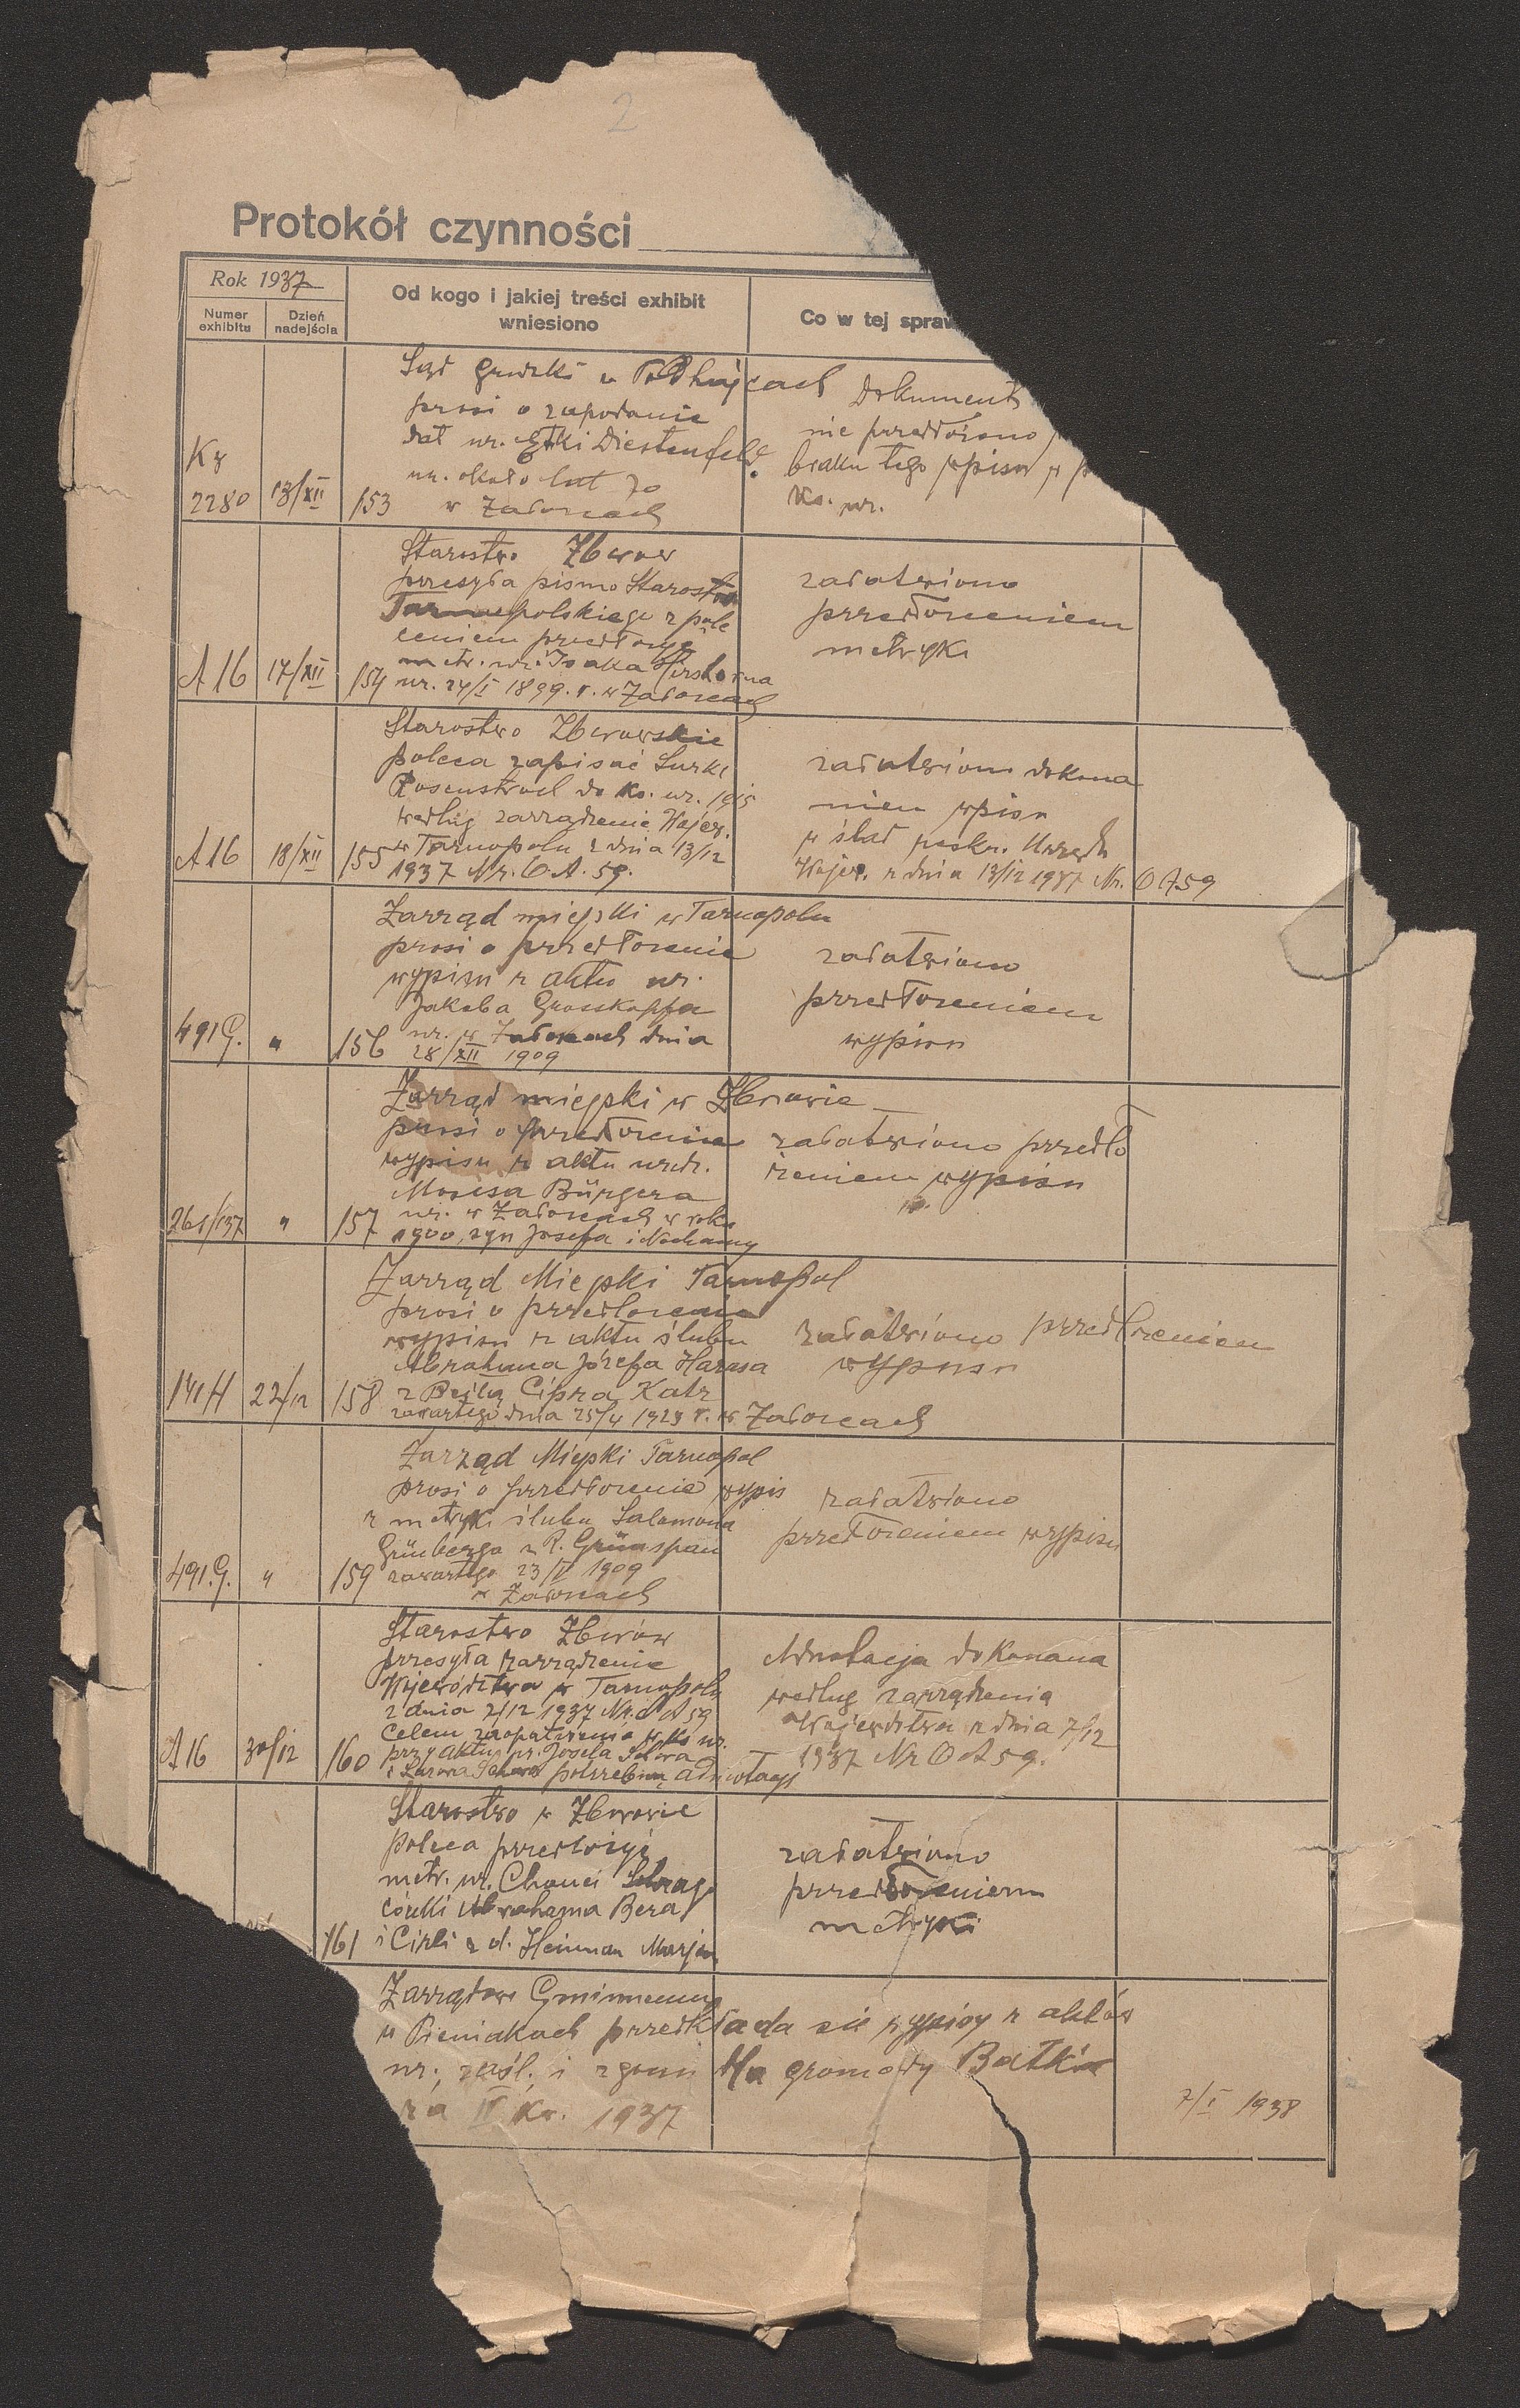 2
Protokół czynności
Rok 1937
Numer exhibitu
Dzień nadejścia
Od kogo i jakiej treści exhibit wniesiono
Co w tej spraw
Kg 2280
13/XII
153
Sąd grodzki w Podhajcach
prosi o zapodanie
dat ur. Etki Diestenfeld
ur. około lat 70
w Załoscach
Dokument
nie przedłożono
braku tego wpisu w
Ks. ur.
A 16
17/XII
154
Starostwo Zborow
przesyła pismo Starostwa
Tarnopolskiego z pole
ceniem przedłożyć
metr. ur. Isaka
ur. 24/I 1899 r. w Załoscach
załatwiono
przedłożeniem
metryki
A 16
18/XII
155
Starostwo Zborowskie
poleca zapisać Surke
Rosenstrach do ks. ur. 1915
według zarządzenie Wojew.
w Tarnopolu z dnia 13/12
1937 Nr. O.A. 59.
załatwiono dokona
niem wpisu
w ślad Urzędu
Wojew. z dnia 13/12 1937 Nr. O A 59
491 G.
"
156
Zarząd miejski w Tarnopolu
prosi o przedłożenie
wypisu z aktu ur.
Jakóba Grosskopfa
ur. w Załoscach dnia
28/XII 1909
załatwiono
przedłożeniem
wypisu
261/137
"
157
Zarząd miejski w Zborowie
prosi o przedłożenie
wypisu z aktu urodz.
Mosesa Bürgera
ur. w Załoscach w roku
1900, syn Josefa i Nechamy
załatwiono przedło
żeniem wypisu
141 H
22/12
158
Zarząd Miejski Tarnopol
prosi o przedłożenie
wypisu z aktu ślubu
Abrahama Józefa Harasa
z Beilą Cipra Katz
zawartego dnia 25/4 1923 r. w Załoscach
załatwiono przedłożeniem
wypisu
491.G.
"
159
Zarząd Miejski Tarnopol
prosi o przedłożenie wypis
z metryki ślubu Salamona
Grünberga z R. Grünspan
zawartego 23/V 1909
w Załoscach
załatwiono
przedłożeniem wypisu
A 16
30/12
160
Starostwo Zborów
przesyła zarządzenie
Województwa w Tarnopolu
z dnia 7/12 1937 Nr. O A 59
celem zaopatrzenia w ks ur.
przy aktu ur. Josela
potrzebną adnotacji
Adnotacja dokonana
według zarządzenia
Województwa z dnia 7/12
1937 Nr O A 59.
161
Starostwo w Zborowie
poleca przedłożyć
metr. ur. Chanci Schrage
córki Abrahama Bera
i Cirli z d. Heinman Marjem
załatwiono
przedłożeniem
metryki
Zarządowi Gminnemu
w Pieniakach przedkłada się wypisy z aktów
ur., zaśl. i zgonu dla gromady Batków
za IV kw. 1937
7/I 1938